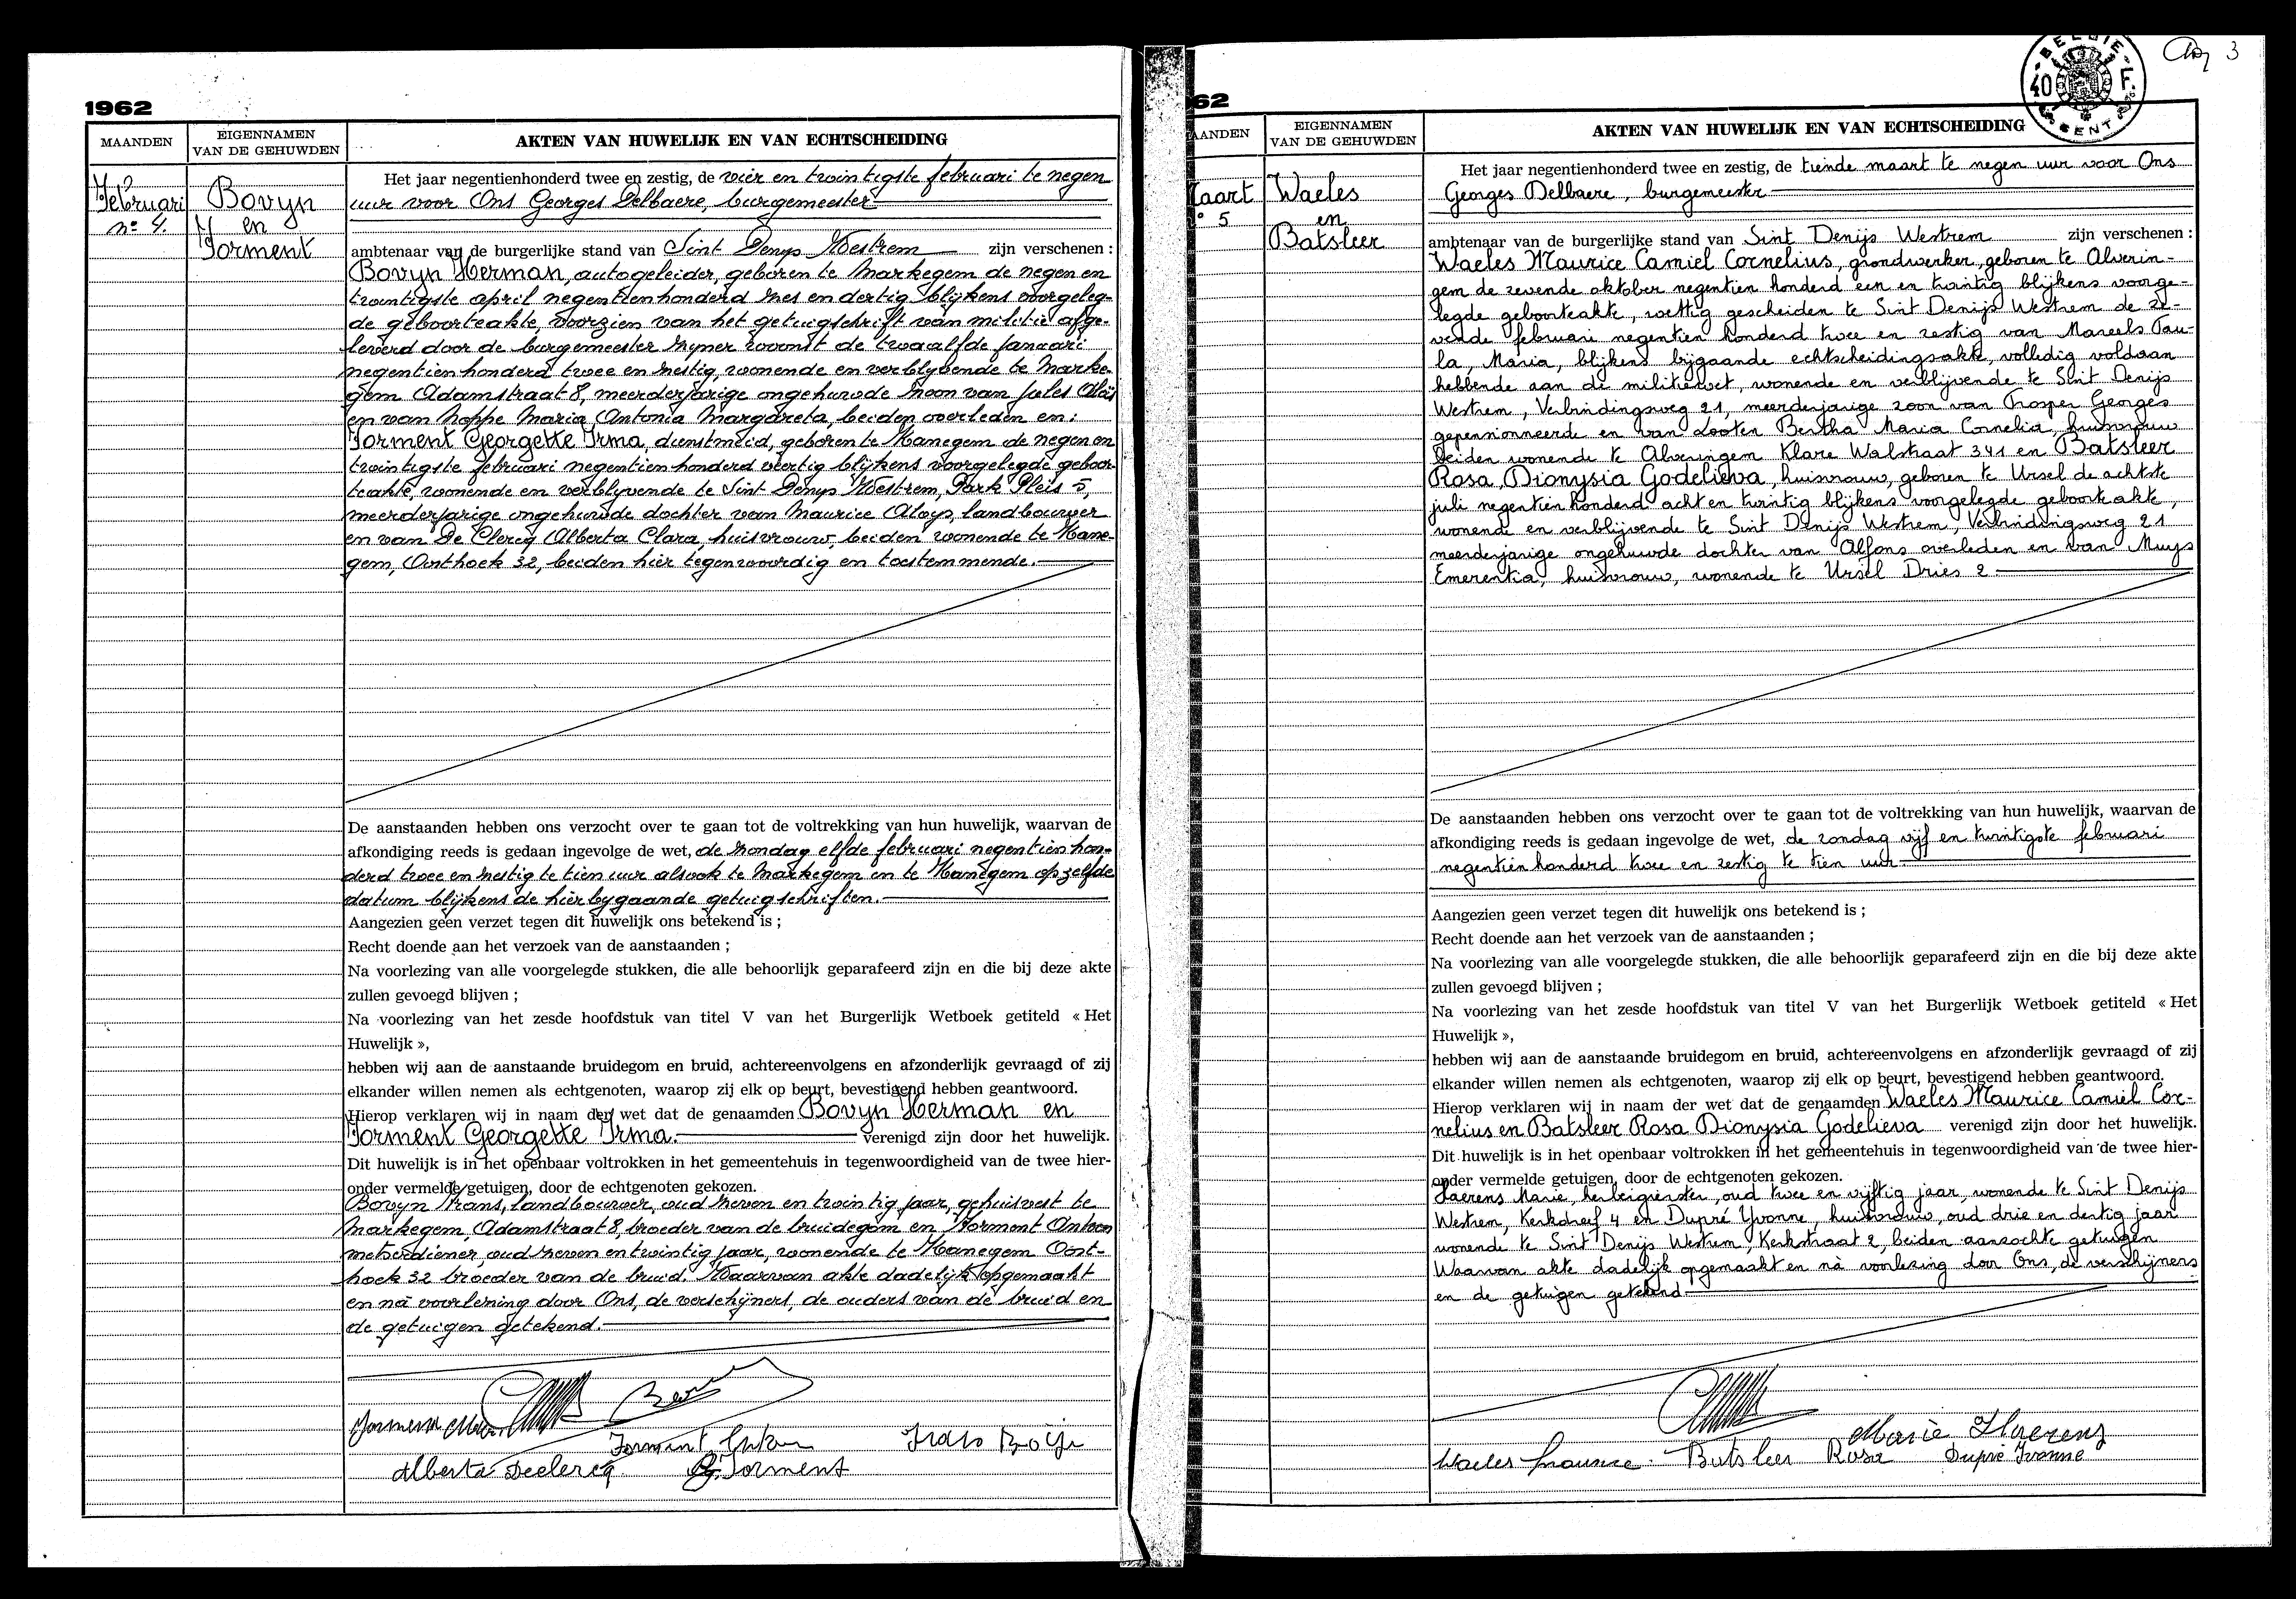 1962
MAANDEN
EIGENNAMEN
VAN DE GEHUWDEN
AKTEN VAN HUWELIJK EN VAN ECHTSCHEIDING
Februari
nº 4.
Bovyn
en
Torment
Het jaar negentienhonderd twee en zestig, de vier en twintigste februari te negen
uur voor Ons Georges Delbaere, burgemeester
ambtenaar van de burgerlijke stand van Sint Denys Westrem zijn verschenen :
Bovyn Herman, autogeleider, geboren te Markegem de negen en
twintigste april negentienhonderd zes en dertig blijkens voorgeleg-
de geboorteakte, voorzien van het getuigschrift van militie afge-
leverd door de burgemeester zyner woonst de twaalfde januari
negentienhonderd twee en zestig, wonende en verblyvende te Marke-
gem Adamstraat 8, meerderjarige ongehuwde zoon van Jules Aloïs
en van Noppe Maria Antonia Margareta, beiden overleden en:
Torment Georgette Irma, dienstmeid, geboren te Kanegem de negen en
twintigste februari negentienhonderd veertig blijkens voorgelegde geboor-
teakte, wonende en verblyvende te Sint Denys Westrem, Park Pleis 5,
meerderjarige ongehuwde dochter van Maurice Aloys, landbouwer
en van De Clercq Alberta Clara, huisvrouw, beiden wonende te Kane-
gem, Oosthoek 32, beiden hier tegenwoordig en toestemmende.
De aanstaanden hebben ons verzocht over te gaan tot de voltrekking van hun huwelijk, waarvan de
afkondiging reeds is gedaan ingevolge de wet, de zondag elfde februari negentien hon-
derd twee en zestig te tien uur alsook te Markegem en te Kanegem op zelfde
datum blijkens de hierbygaande getuigschriften.
Aangezien geen verzet tegen dit huwelijk ons betekend is ;
Recht doende aan het verzoek van de aanstaanden ;
Na voorlezing van alle voorgelegde stukken, die alle behoorlijk geparafeerd zijn en die bij deze akte
zullen gevoegd blijven ;
Na voorlezing van het zesde hoofdstuk van titel V van het Burgerlijk Wetboek getiteld « Het
Huwelijk »,
hebben wij aan de aanstaande bruidegom en bruid, achtereenvolgens en afzonderlijk gevraagd of zij
elkander willen nemen als echtgenoten, waarop zij elk op beurt, bevestigend hebben geantwoord.
Hierop verklaren wij in naam der wet dat de genaamden Bovyn Herman en
Torment Georgette Irma. verenigd zijn door het huwelijk.
Dit huwelijk is in het openbaar voltrokken in het gemeentehuis in tegenwoordigheid van de twee hier-
onder vermelde getuigen, door de echtgenoten gekozen.
Bovyn Frans, landbouwer, oud zeven en twintig jaar, gehuisvest te
Markegem, Adamstraat 8, broeder van de bruidegom en Torment Antoon
metserdiener, oud zeven en twintig jaar, wonende te Kanegem Oost-
hoek 32 broeder van de bruid. Waarvan akte dadelijk opgemaakt
en na voorlezing door Ons, de verschijners, de ouders van de bruid en
de getuigen getekend.
Alberta Declercq
G. Torment
62
AANDEN
EIGENNAMEN
VAN DE GEHUWDEN
AKTEN VAN HUWELIJK EN VAN ECHTSCHEIDING
BELGIE
40 F.
CENT
3
aart
º 5
Waeles
en
Batsleer
Het jaar negentienhonderd twee en zestig, de tiende maart te negen uur voor Ons
Georges Delbaere, burgemeester
ambtenaar van de burgerlijke stand van Sint Denijs Westrem zijn verschenen :
Waeles Maurice Camiel Cornelius, grondwerker, geboren te Alverin-
gem de zevende oktober negentien honderd een en twintig blijkens voorge-
legde geboorteakte, wettig gescheiden te Sint Denijs Westrem de ze-
vende februari negentien honderd twee en zestig van Mareels Pau-
la, Maria, blijkens bijgaande echtscheidingsakte, volledig voldaan
hebbende aan de militiewet, wonende en verblijvende te Sint Denijs
Westrem, Verbindingsweg 21, meerderjarige zoon van Prosper Georges
gepensionneerde en van Looten Bertha Maria Cornelia, huisvrouw
beiden wonende te Alveringem Klare Walstraat 341 en Batsleer
Rosa, Dionysia Godelieva, huisvrouw, geboren te Ursel de achtste
juli negentien honderd acht en twintig blijkens voorgelegde geboorteakte,
wonende en verblijvende te Sint Denijs Westrem, Verbindingsweg 21
meerderjarige ongehuwde dochter van Alfons overleden en van Muys
Emerentia, huisvrouw, wonende te Ursel Dries 2
De aanstaanden hebben ons verzocht over te gaan tot de voltrekking van hun huwelijk, waarvan de
afkondiging reeds is gedaan ingevolge de wet, de zondag vijf en twintigste februari
negentienhonderd twee en zestig te tien uur
Aangezien geen verzet tegen dit huwelijk ons betekend is ;
Recht doende aan het verzoek van de aanstaanden ;
Na voorlezing van alle voorgelegde stukken, die alle behoorlijk geparafeerd zijn en die bij deze akte
zullen gevoegd blijven ;
Na voorlezing van het zesde hoofdstuk van titel V van het Burgerlijk Wetboek getiteld « Het
Huwelijk »,
hebben wij aan de aanstaande bruidegom en bruid, achtereenvolgens en afzonderlijk gevraagd of zij
elkander willen nemen als echtgenoten, waarop zij elk op beurt, bevestigend hebben geantwoord.
Hierop verklaren wij in naam der wet dat de genaamden Waeles Maurice Camiel Cor-
nelius en Batsleer Rosa Dionysia Godelieva verenigd zijn door het huwelijk.
Dit huwelijk is in het openbaar voltrokken in het gemeentehuis in tegenwoordigheid van de twee hier-
onder vermelde getuigen, door de echtgenoten gekozen.
Haerens Marie, herbergierster, oud twee en vijftig jaar, wonende te Sint Denijs
Westrem, Kerkdreef 4 en Dupré Yvonne, huisvrouw, oud drie en dertig jaar
wonende te Sint Denijs Westrem, Kerkstraat 2, beiden aanzochte getuigen
Waarvan akte dadelijk opgemaakt en nà voorlezing door Ons, de verschijners
en de getuigen getekend
Marie Haerens
Waeles Maurice Batsleer Rosa Dupré Ivonne